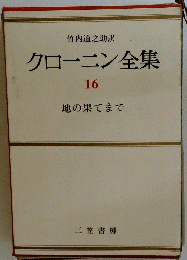 竹内道之助訳
クローニン全集
16
地の果てまで
三笠書房